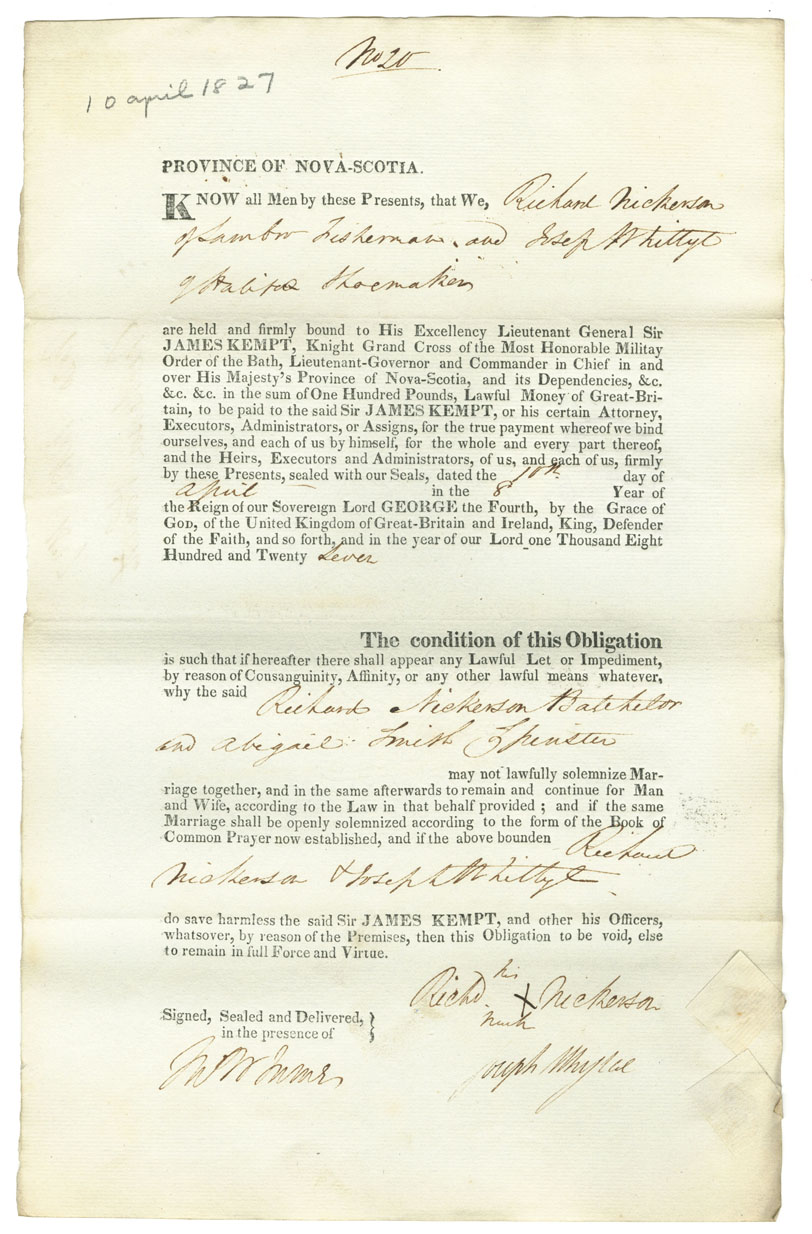 No 20
10 april 1827
PROVINCE OF NOVA-SCOTIA.
KNOW all Men by these Presents, that We, Richard Nickerson
of Sambro Fisherman, and Joseph Whittyt
of Halifax Shoemaker
are held and firmly bound to His Excellency Lieutenant General Sir
JAMES KEMPT, Knight Grand Cross of the Most Honorable Military
Order of the Bath, Lieutenant-Governor and Commander in Chief in and
over His Majesty's Province of Nova-Scotia, and its Dependencies, &c.
&c. &c. in the sum of One Hundred Pounds, Lawful Money of Great-Bri-
tain, to be paid to the said Sir JAMES KEMPT, or his certain Attorney,
Executors, Administrators, or Assigns, for the true payment whereof we bind
ourselves, and each of us by himself, for the whole and every part thereof,
and the Heirs, Executors and Administrators, of us, and each of us, firmly
by these Presents, sealed with our Seals, dated the 10th day of
April in the 8 Year of
the Reign of our Sovereign Lord GEORGE the Fourth, by the Grace of
GOD, of the United Kingdom of Great-Britain and Ireland, King, Defender
of the Faith, and so forth, and in the year of our Lord one Thousand Eight
Hundred and Twenty Seven
The condition of this Obligation
is such that if hereafter there shall appear any Lawful Let or Impediment,
by reason of Consanguinity, Affinity, or any other lawful means whatever,
why the said Richard Nickerson Batchelor
and Abigail Smith Spinster
may not lawfully solemnize Mar-
riage together, and in the same afterwards to remain and continue for Man
and Wife, according to the Law in that behalf provided ; and if the same
Marriage shall be openly solemnized according to the form of the Book of
Common Prayer now established, and if the above bounden Richard
Nickerson & Joseph Whittyt
do save harmless the said Sir JAMES KEMPT, and other his Officers,
whatsover, by reason of the Premises, then this Obligation to be void, else
to remain in full Force and Virtue.
his
Richd X Nickerson
mark
Signed, Sealed and Delivered,
in the presence of
Joseph